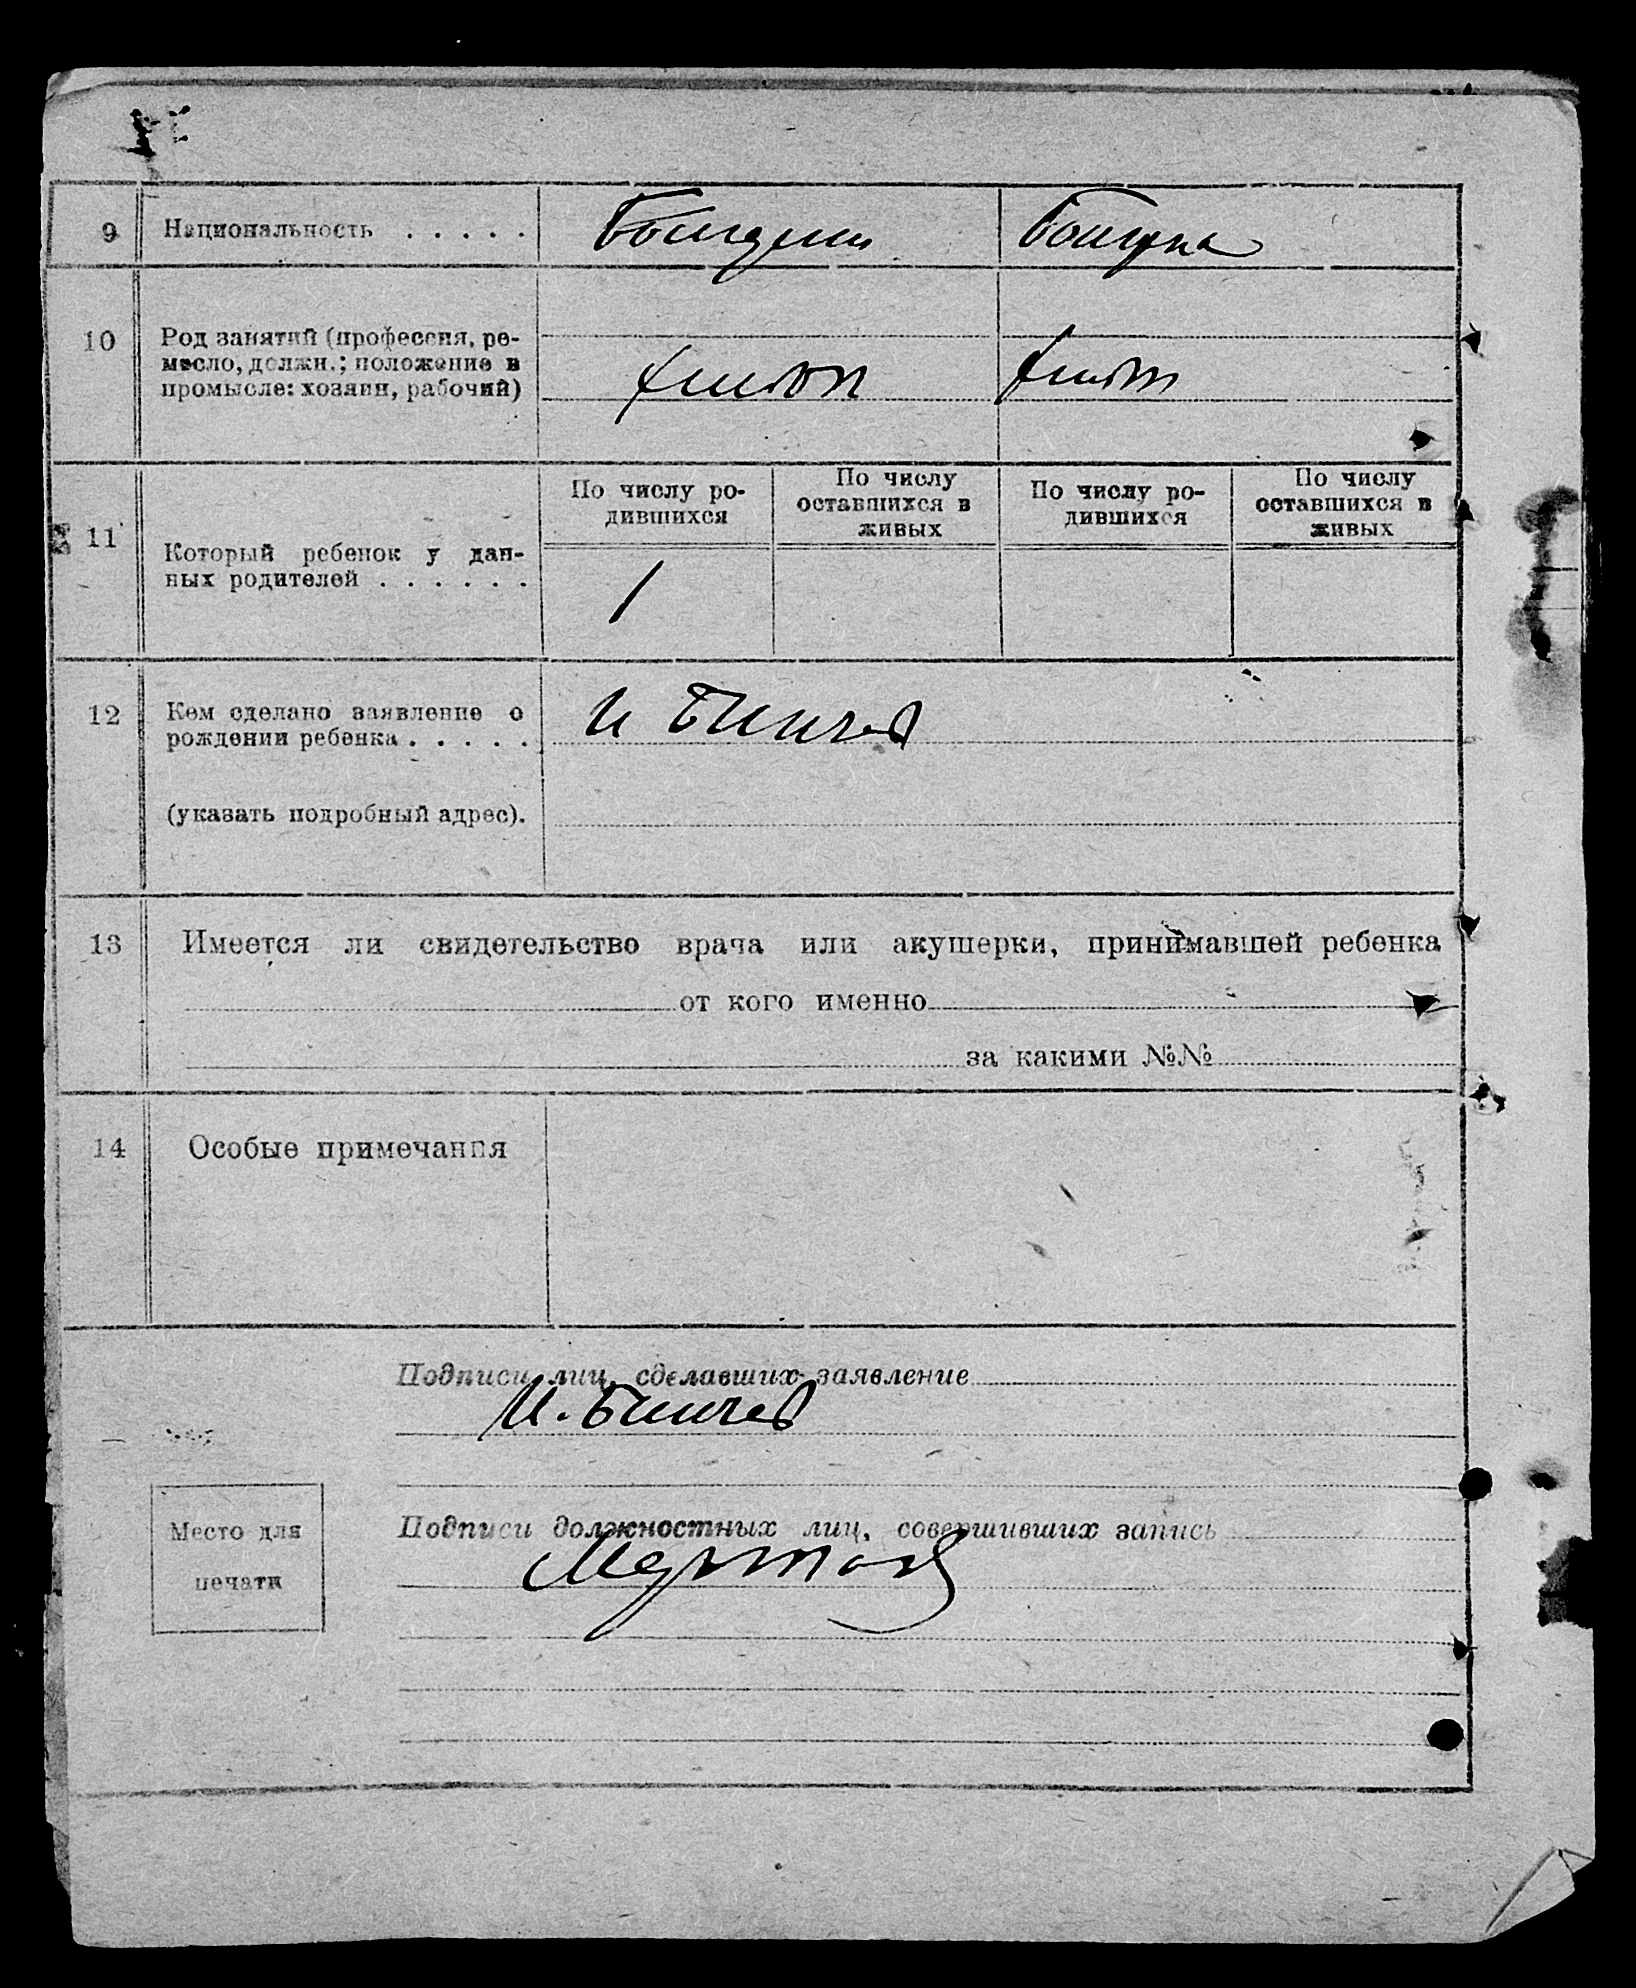 9 Национальность . . . . .
10 Род занятий (профессия, ре-
месло, должн.; положение в
промысле: хозяин, рабочий)
По числу ро-
дившихся
По числу
оставшихся в
живых
По числу ро-
дившихся
По числу
оставшихся в
живых
11 Который ребенок у дан-
ных родителей . . . . . . 1
12 Кем сделано заявление о
рождении ребенка . . . . . И
(указать подробный адрес).
13 Имеется ли свидетельство врача или акушерки, принимавшей ребенка
от кого именно
за какими №№
14 Особые примечания
Подписи лиц, сделавших заявление
И.
Место для
печати
Подписи должностных лиц, совершивших запись